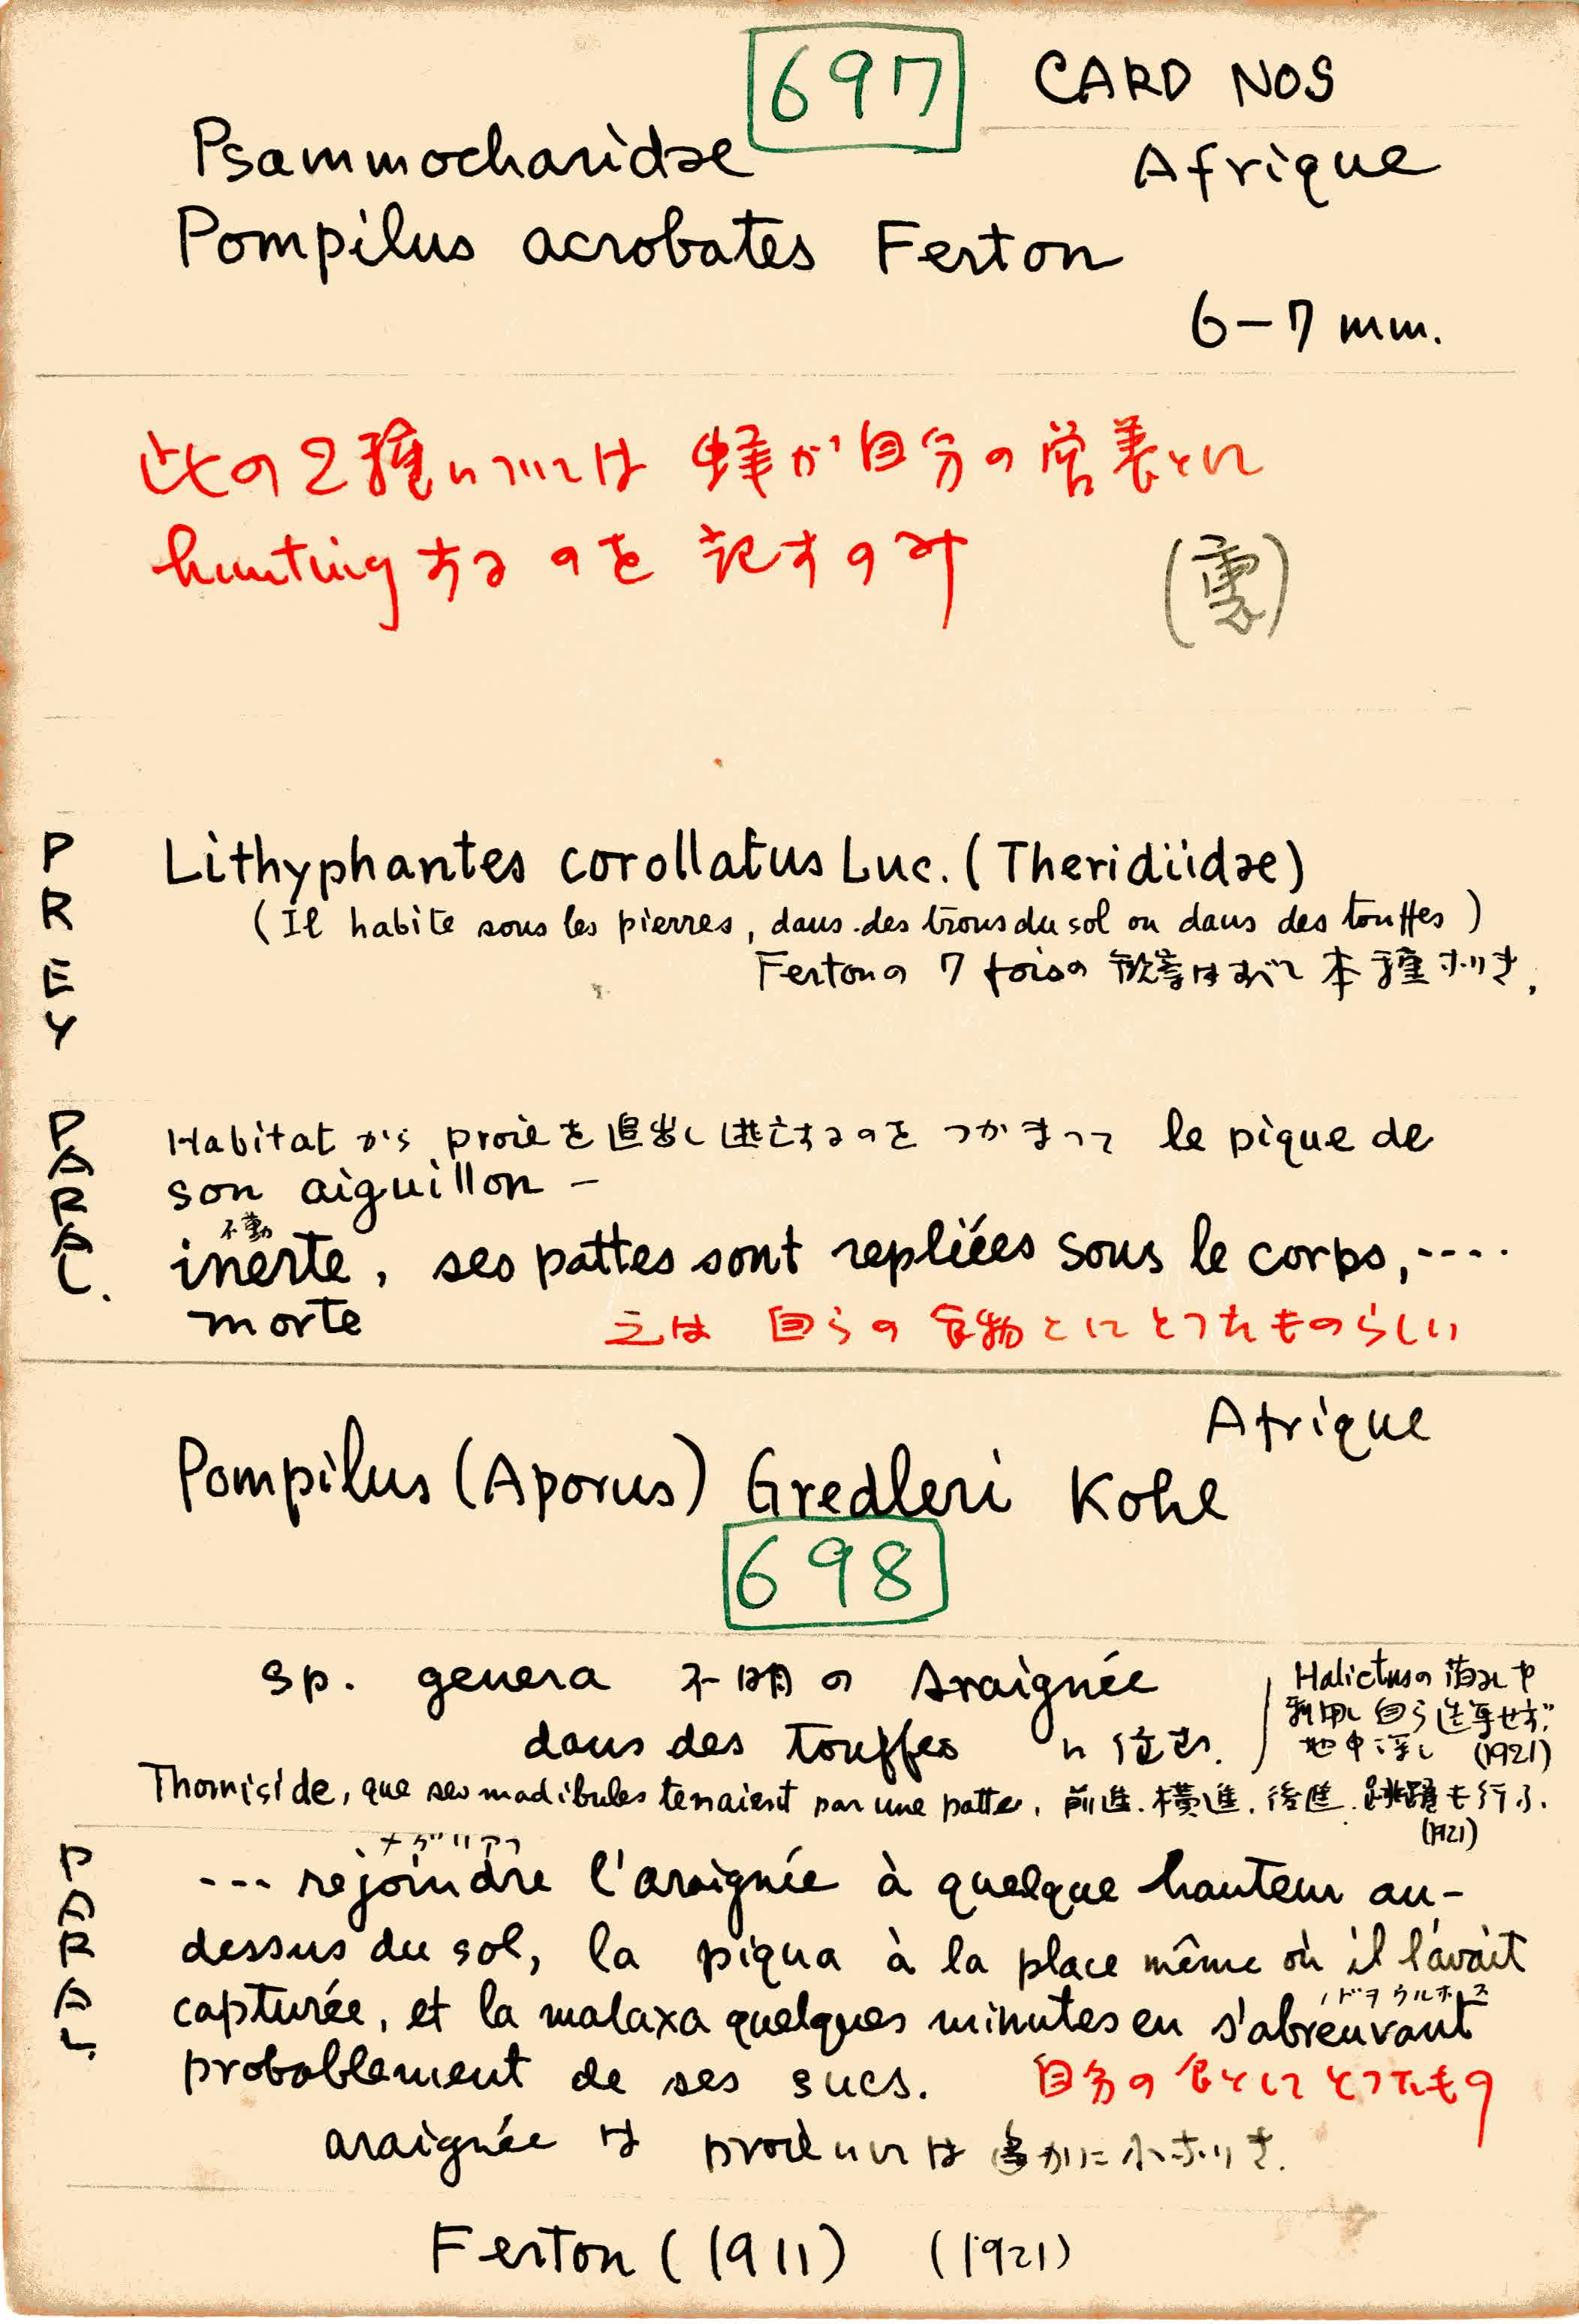 697 CARD NOS
Psammocharidae Afrique
Pompilus acrobates Ferton
6-7 mm.
此の2種については 蜂が自分の営養とに
huntingするのを 記すのみ
PREY
Lithyphantes corollatus Luc. (Theridiidae)
(Il habite sous les pierres, dans des trous du sol ou dans des touffes)
Fertonの 7 foisの はすべて 本種ナリき.
PARAL.
Habitat から proieを追出し逃亡するのを つかまって le pique de
son aiguillon —
不動
inerte, ses pattes sont repliées sous le corps, ....
morte 之は 自らの 食物とにとったものらしい
Afrique
Pompilus (Aporus) Gredleri Kohl
698
sp. genera 不明の Araignée
dans des touffes に住む.
Halictusの
利用し自ら せず
地中 (1921)
Thomiside, que ses madibules tenaient par une patte, 前進.横進.後進.跳躍も行ふ.
(1921)
PARAL.
... rejoindre l'araignée à quelque hauteur au-
dessus du sol, la piqua à la place même où il l'avait
capturée, et la malaxa quelques minutes en s'abreuvant
probablement de ses sucs. 自分の食とにとったもの
araignée は proie には 小ナリき.
Ferton (1911) (1921)